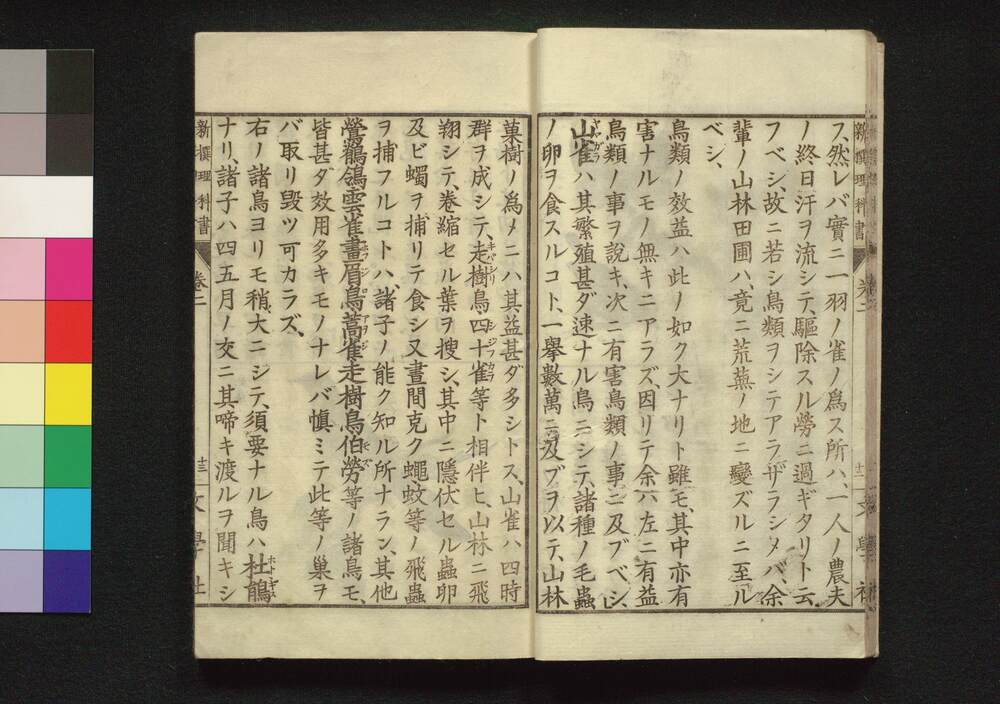 フ、然レバ實ニ一羽ノ雀ノ爲ス所ハ、一人ノ農夫
ノ終日汗ヲ流シテ、驅除スル勞ニ過ギタリト云
フベシ、故ニ若シ鳥類ヲシテアラザラシメバ、余
輩ノ山林田圃ハ竟ニ荒蕪ノ地ニ變ズルニ至ル
ベシ、
鳥類ノ效益ハ此ノ如ク大ナリト雖モ、其中亦有
害ナルモノ無キニアラズ、因リテ余ハ左ニ有益
鳥類ノ事ヲ說キ、次ニ有害鳥類ノ事ニ及ブベシ、
山雀ハ其繁殖甚ダ速ナル鳥ニシテ、諸種ノ毛蟲
ノ卵ヲ食スルコト、一擧數萬ニ及ブヲ以テ、山林
新撰理科書 卷二 十二 文學社
菓樹ノ爲メニハ其益甚ダ多シトス、山雀ハ四時
群ヲ成シテ、走樹鳥四十雀等ト相伴ヒ、山林ニ飛
翔シテ、卷縮セル葉ヲ搜シ、其中ニ隱伏セル蟲卵
及ビ蠋ヲ捕リテ食シ又晝間克ク蠅、蚊等ノ飛蟲
ヲ捕フルコトハ、諸子ノ能ク知ル所ナラン、其他
鶯、鶺鴒、雲雀、畫眉鳥、蒿雀、走樹鳥、伯勞等ノ諸鳥モ、
皆甚ダ效用多キモノナレバ愼ミテ此等ノ巢ヲ
バ取リ毀ツ可カラズ、
右ノ諸鳥ヨリモ稍大ニシテ、須要ナル鳥ハ杜鵑
ナリ、諸子ハ四五月ノ交ニ其啼キ渡ルヲ聞キシ
新撰理科書 卷二 十三 文學社